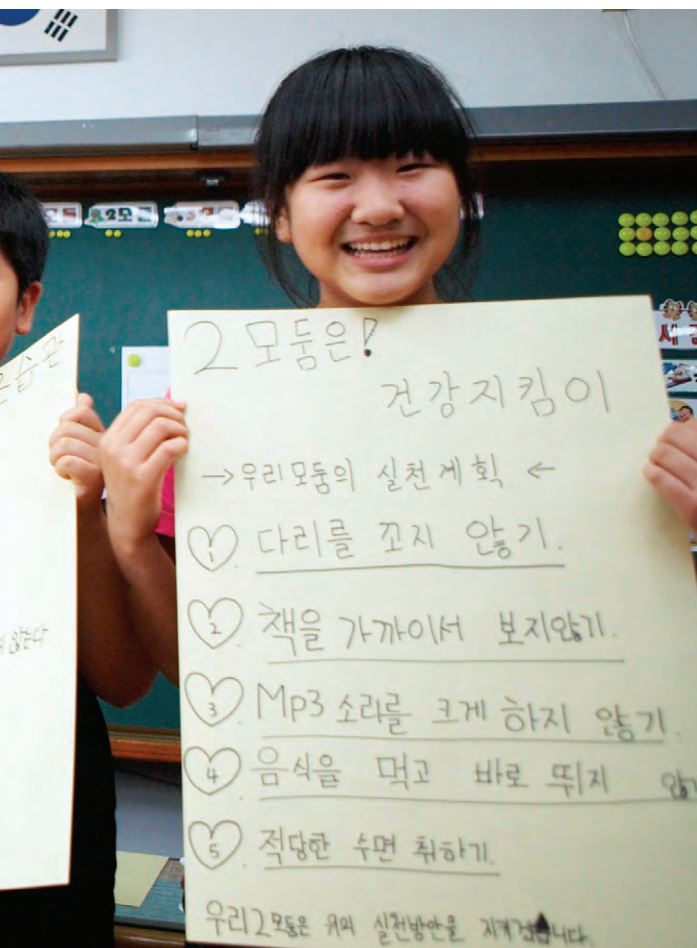 2모둠은!
건강지킴이
→우리모둠의 실천계획←
1. 다리를 꼬지 않기.
2. 책을 가까이서 보지않기.
3. Mp3 소리를 크게 하지 않기.
4. 음식을 먹고 바로 뛰지 않기
5. 적당한 수면 취하기.
우리2모둠은 위의 실천방안을 지키겠습니다.
습관
않는다
2모